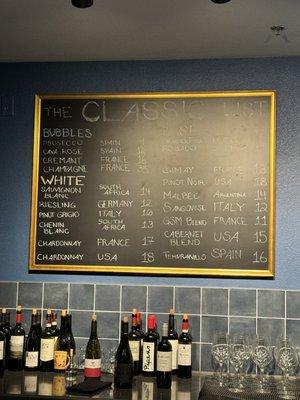 THE CLASSIC LIST
BUBBLES
PROSECCO SPAIN
CAVA ROSE SPAIN
CREMANT FRANCE 16
CHAMPAGNE FRANCE
WHITE
SAUVIGNON BLANC SOUTH AFRICA 14
RIESLING GERMANY 12
PINOT GRIGIO ITALY 10
CHENIN BLANC SOUTH AFRICA 13
CHARDONNAY FRANCE 17
CHARDONNAY USA 18
GAMAY FRANCE 13
PINOT NOIR USA 18
MALBEC ARGENTINA 14
SANGIOVESE ITALY 13
GSM BLEND FRANCE 11
CABERNET BLEND USA 15
TEMPRANILLO SPAIN 16